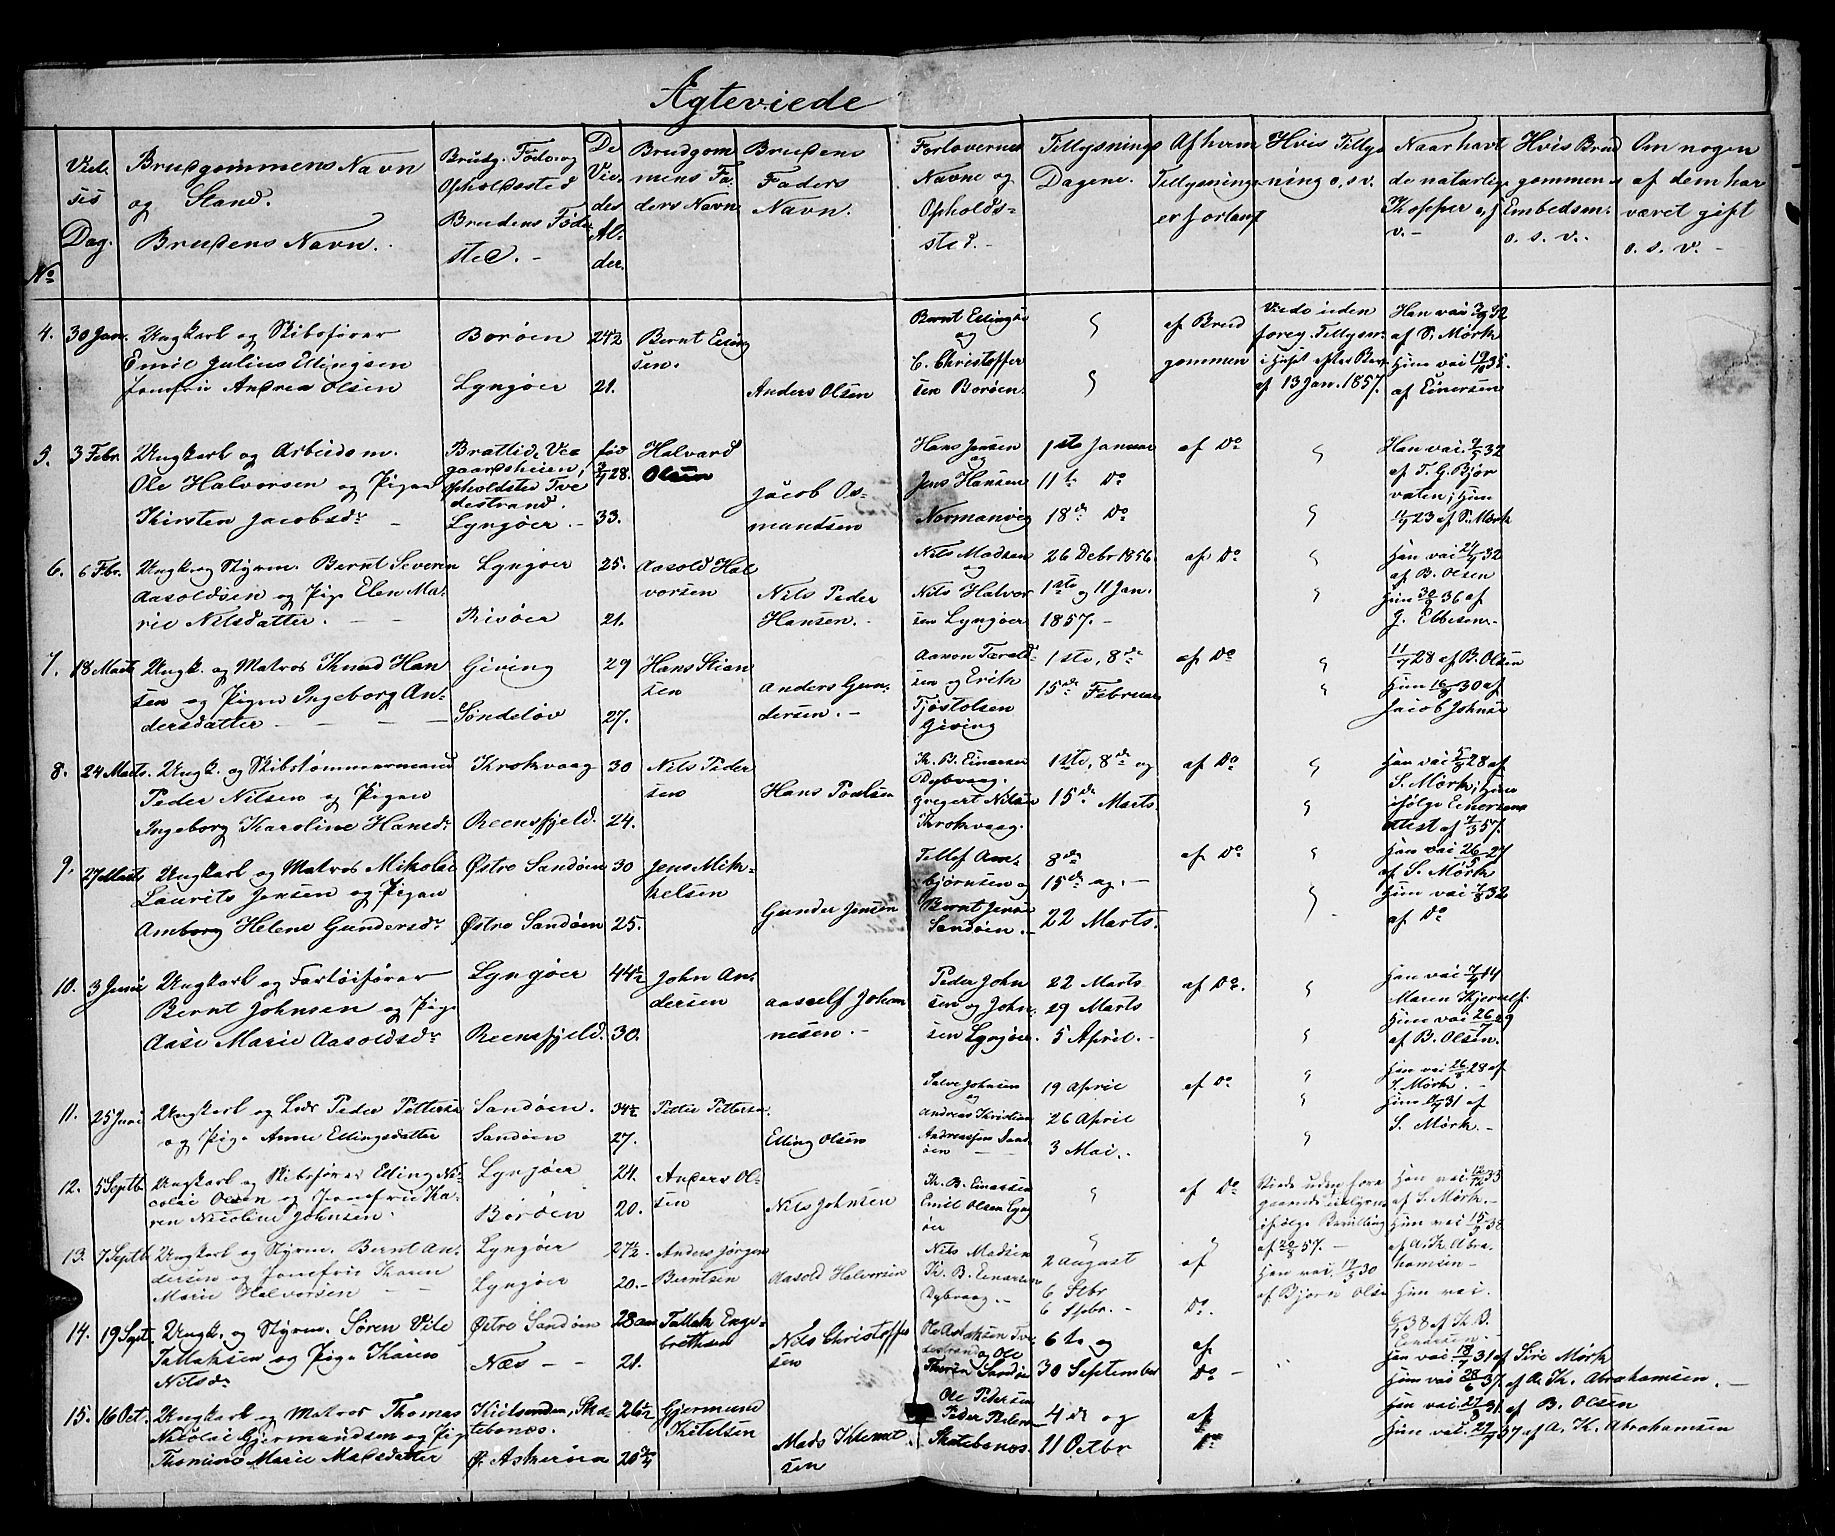 Ægteviede
No
Viel-
ses
Dag.
Brudgommens Navn
og Stand.
Brudens Navn.
Brudg. Føde og
Opholdssted
Brudens Føde-
sted. -
De
Vie-
des
Al-
der.
Brudgom
mens Fa-
ders Navn
Brudens
Faders
Navn.
Forlovernes
Navne og
Opholds-
sted. -
Tillysnings
Dagene.
Af hvem
Tillysninge
er forlangt
Hvis Tillys
ning o. s. v.
Naar havt
de naturlige
Kopper o. s.
v. -
Hvis Brud
gommen s
Embedsm.
o. s. v. -
Om nogen
af dem har
været gift
o. s. v. -
4. 30 Jan. Ungkarl og Skibsfører
Emil Julius Ellingsen
Jomfru Andrea Olsen
Borøen
Lyngøer
24 1/2
21.
Bernt Elling
sen.
Anders Olsen
Bernt Ellingse
og
C. Christoffer
sen Borøen.
af Brud
gommen
Viede uden
foreg. Tillysn.
i Huset efter Bev.
af 13 Jan. 1857.
Han vac. 3/9 32
af S. Mørk
Hun vac. 19/8 35.
af Einersen
5. 3 Febr. Ungkarl og Arbeidsm.
Ole Halvorsen og Pigen
Kirsten Jacobsdr -
Brattlid, Ve
gaardsheien,
Opholdsted Tve
destrand.
Lyngøer -
fød
28.
33.
Halvard
Olsen
Jacob Os-
mundsen
Hans Jensen
og
Jens Hansen
Normanvig
1ste Januar
11te Do
18de Do
af Do
Han vac. 32
af T. G. Bjor
vaten; Hun
23 af S. Mørk
6. 6 Fbr. Ungk. og Styrm. Bernt Severin
Aasoldsen og Pige Elen Ma-
rie Nilsdatter. - -
Lyngøer
Risøer
25.
21.
Aasold Hal
vorsen
Nils Peder
Hansen. -
Nils Madsen
og
Nils Halvor
sen Lyngøer
26 Debr 1856
1ste og 11 Jan.
1857. -
af Do
Han vac. 32
af B. Olsen
Hun 36 af
J. Ebbesen -
7. 18 Marts Ungk. og Matros Knud Han
sen og Pigen Ingeborg An-
dersdatter - - - -
Giving
Søndeløv
29
27.
Hans Stian
sen
Anders Gun-
dersen. -
Aanon Tarald-
sen og Erik
Tjøstolsen
Giving
1ste, 8de
15de Februar
af Do
11/7 28 af B. Olsen
Hun 30 af
Jacob Johnse
8. 24 Marts. Ungk. og Skibstømmermand
Peder Nilsen og Pigen
Ingeborg Karoline Hansdr
Krokvaag
Reensfjeld.
30
24.
Nils Peder
sen
Hans Poulsen
K. B. Einersen
Dybvaag.
Gregert Nilsen
Krokvaag.
1ste, 8de og
15de Marts
af Do
Han vac. 28 af
S. Mørk; Hun
ifølge Einersens
Attest af 7/3 57.
9. 27 Marts Ungkarl og Matros Mikolai
Laurits Jensen og Pigen
Amborg Helene Gundersdr
Østre Sandøen
Østre Sandøen
30
25.
Jens Mik-
kelsen
Gunder Jensen
Tellef Am-
bjørnsen og
Bernt Jense
Sandøen. -
8de
15de og. -
22 Marts.
af Do
Han vac. 26/5 27
af S. Mørk
Hun vac. 32
af Do
10. 3 Juni Ungkarl og Fartøifører
Bernt Johnsen og Pige
Aase Marie Aasoldsdr
Lyngøer
Reensfjeld.
44 1/2
30.
John An-
dersen
Aasolf Johan
nesen. -
Peder John
sen og John-
sen Lyngøer.
22 Marts
29 Marts
5 April. -
af Do.
Han vac. 14
Maren Kjerulf.
Hun vac. 26/7 29
af B. Olsen.
11. 25 Juni Ungkarl og Lods Peder Pettersen
og Pige Anne Ellingsdatter
Sandøen.
Sandøen
34 1/2
27.
Petter Petterse
Elling Olsen
Salve Johnsen
og
Andreas Kristian
Andreassen Sand
øen
19 April
26 April
3 Mai.
af Do
Han vac. 26/8 28 af
S. Mørk. -
Hun 31 af
S. Mørk -
12. 5 Septb. Ungkarl og Skibsfører Elling Ni-
colai Olsen og Jomfru Ka-
ren Nicoline Johnsen.
Lyngøer
Borøen
24.
20.
Anders Ol-
sen
Nils Johnsen
K. B. Einersen
Emil Olsen Lyng
øer
af Do
Viede uden fore
gaaende Tillysn.
ifølge Bevilling
af 57. -
Han vac. 33
af S. Mørk. -
Hun vac. 15/ 38
af A. K. Abra-
hamsen -
13. 7 Septb. Ungkarl og Styrm. Bernt An-
dersen og Jomfru Karen
Marie Halvorsen -
Lyngøer
Lyngøer
27 1/2
20. -
Anders Jørgen
Berntsen
Aasold Halvorsen
Nils Madsen
K. B. Einarsen
Dybvaag. -
2 August
6 Stbr
6 Spbr. -
af
Do.
Han vac. 30
af Bjorn Olse
Hun vac.
38 af K. B.
Einersen. -
14. 19 Sept. Ungk. og Styrm. Søren Vile
Tallaksen og Pige Karen
Nilsdr
Østre Sandøen
Næs - -
28 aar
21.
Tallak Enge-
brethsen
Nils Christoffer
sen
Ole Aslaksen Tve
destrand og Ole
Thoren Sandøe
6te og
30 September
af
Do -
Han vac. 18/7 31 af Sire Mørk
Hun vac. 28/6 37. af A. K. Abrahamsen. -
15. 16 Oct. Ungkarl og Matros Thomas
Nicolai Gjermundsen og Pige
Thomine Marie Madsdatter
Kidlsunden, Ska-
tebonæs.
Ø. Askerøen
26 1/2
20
Gjermund
Ketelsen
Mads Klemet
sen
Ole Pedersen
Peder Pedersen
Skatebonæs.
4de og
11 Octbr
af
Do
Han vac. 27/ 31 af B. Olsen
Hun vac. 37 af A. K. Abrahamsen